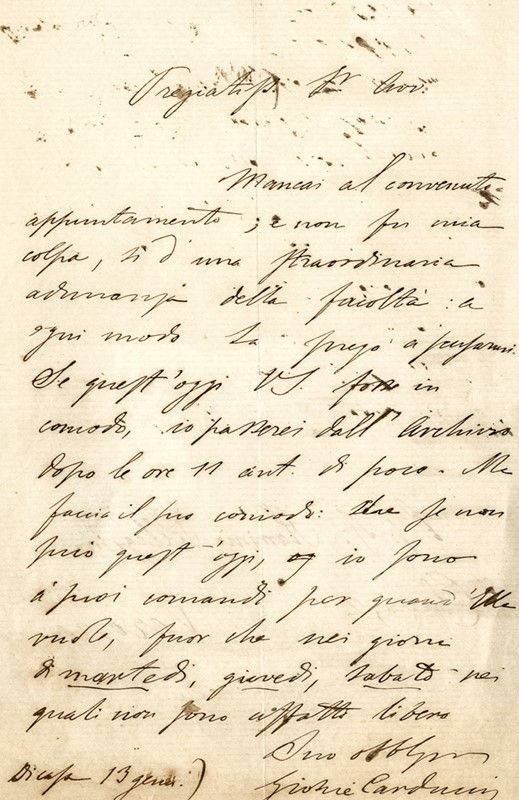 Pregiatiss. Sr Avv.
Mancai al convenuto
appuntamento; e non fu mia
colpa, sì d'una straordinaria
adunanza della facoltà: a
ogni modo La prego a scusarmi.
Se quest'oggi VS. fosse in
comodo, io passerei dall'Archivio
dopo le ore 11 ant. di poco. Ma
faccia il suo comodo: che se non
può quest'oggi, io sono
a' suoi comandi per quand'Ella
vuole, fuor che nei giorni
di martedì, giovedì, sabato nei
quali non sono affatto libero
Suo obblmo
Di casa 13 genn.)
Giosuè Carducci